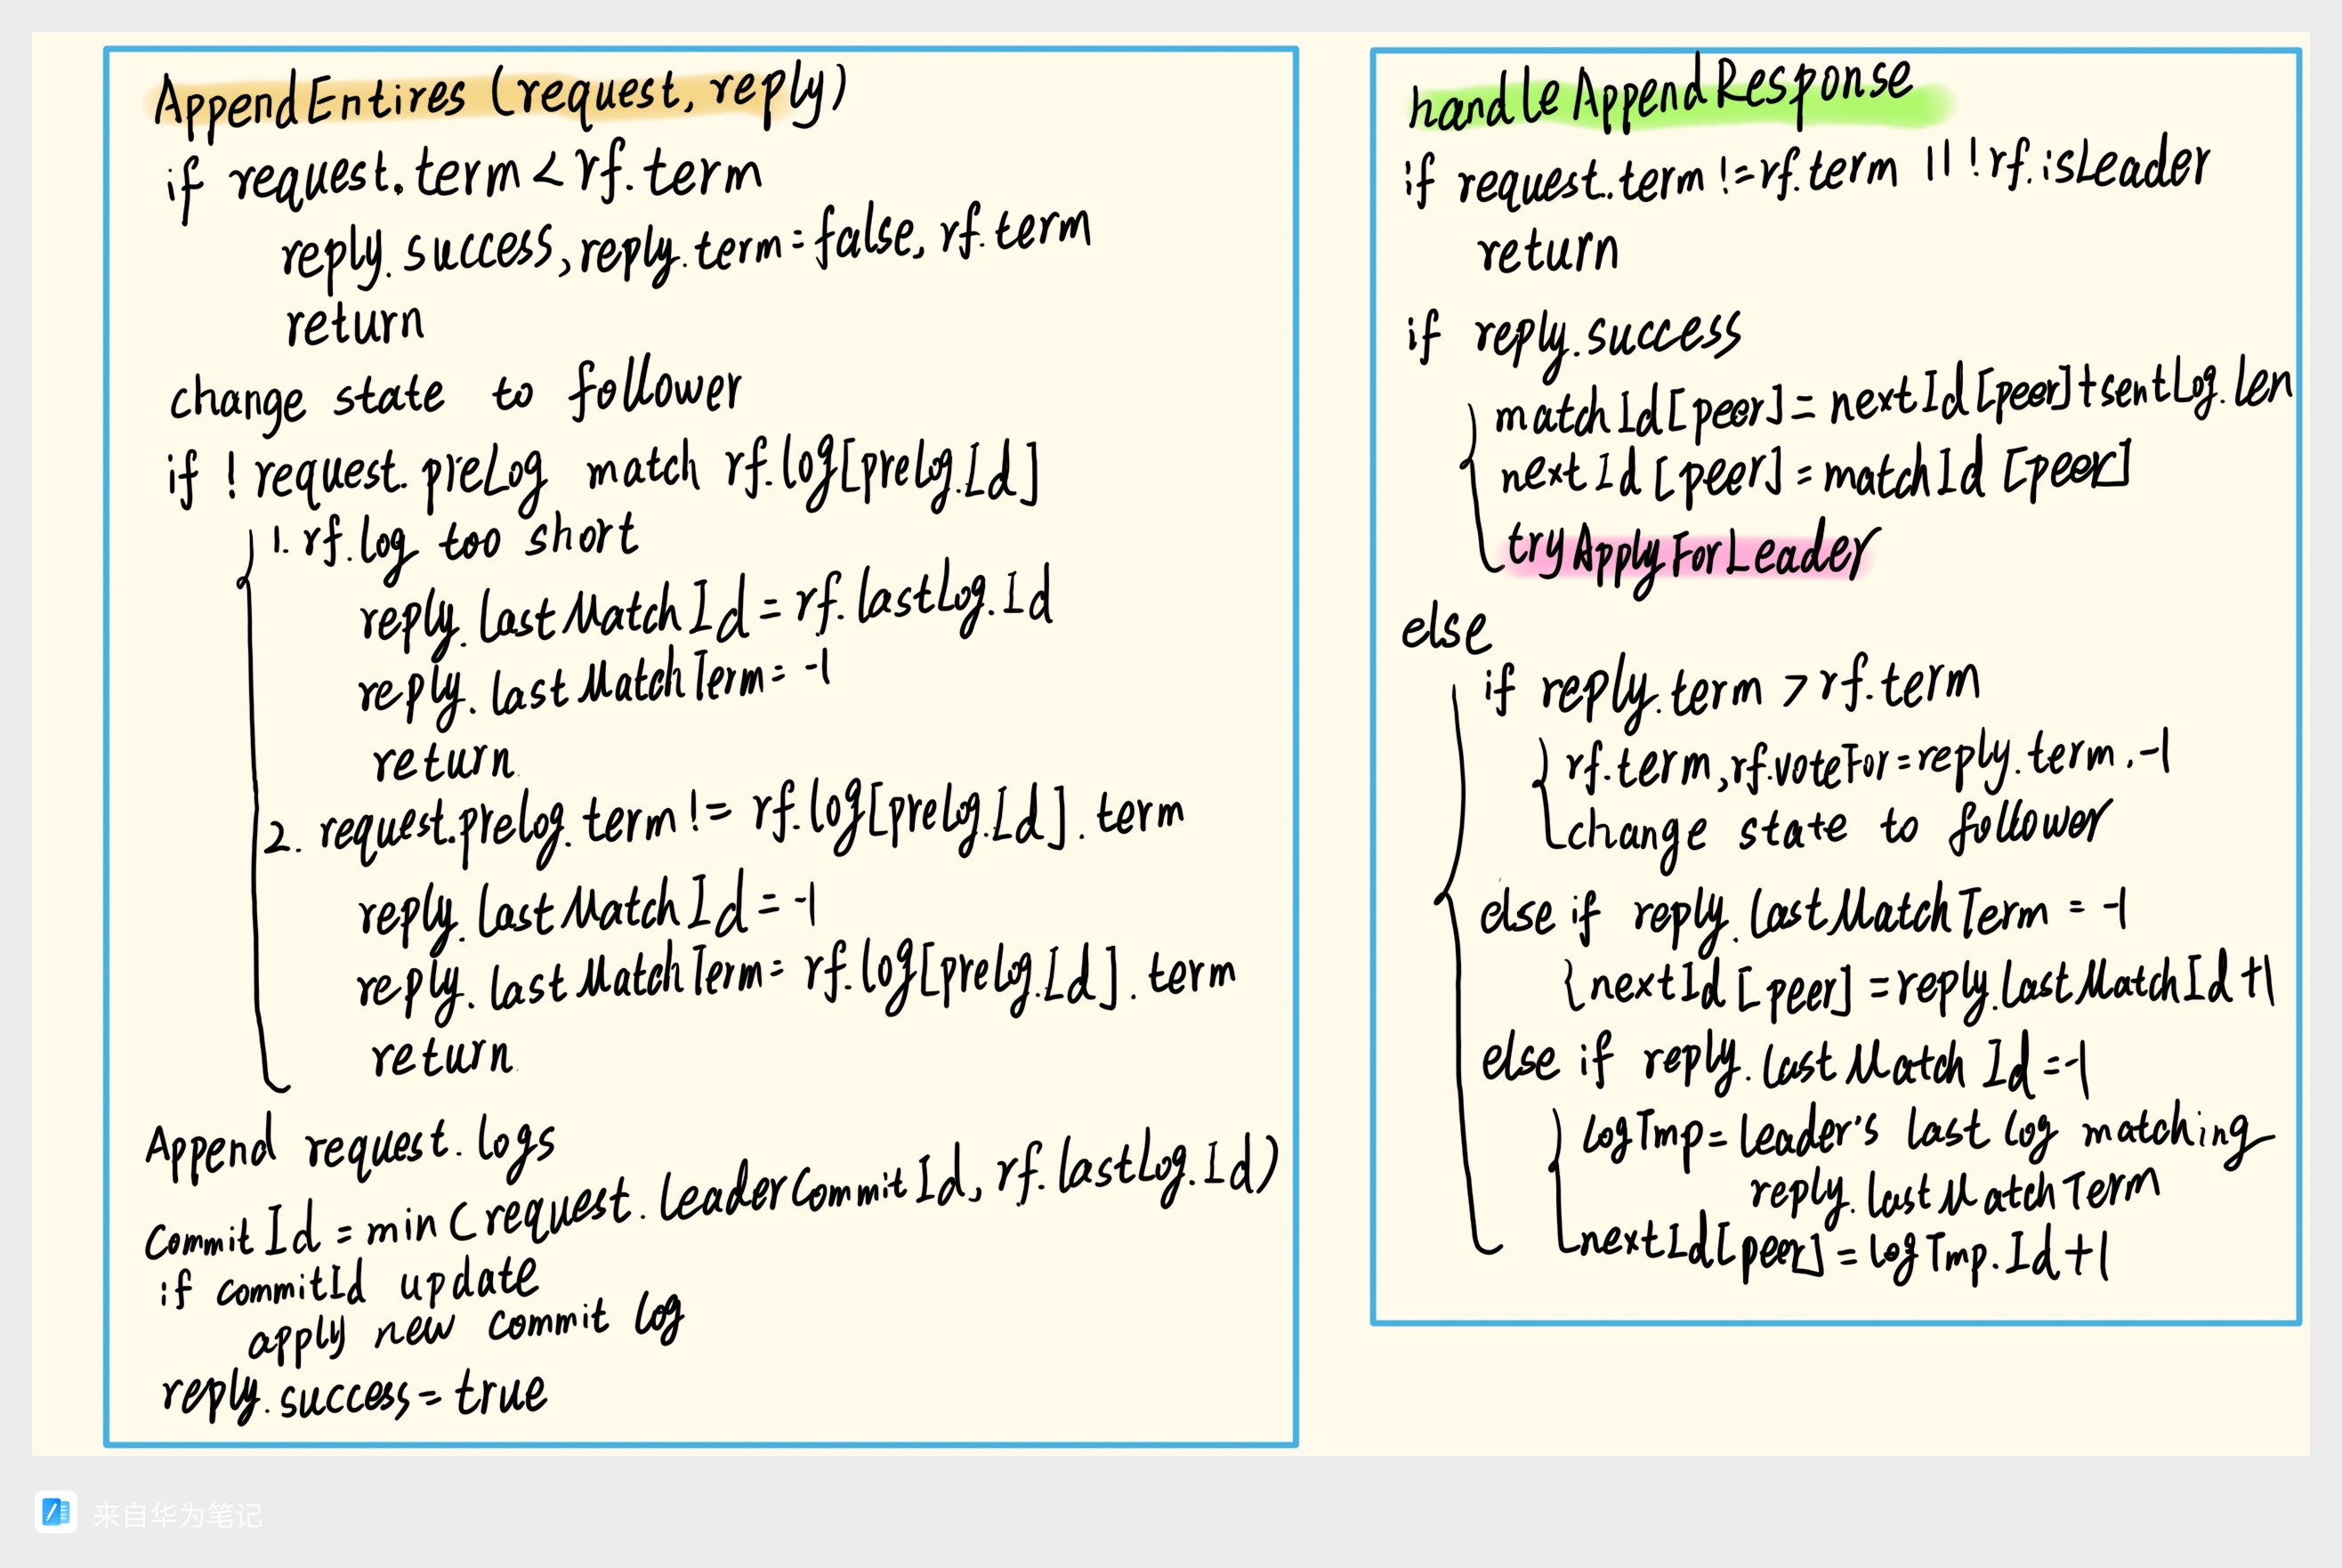 AppendEntires (request, reply)
if request.term < rf.term
reply.success, reply.term = false, rf.term
return
change state to follower
if ! request.preLog match rf.log[prelog.Id]
1. rf.log too short
reply.lastMatchId = rf.lastLog.Id
reply.lastMatchTerm = -1
return
2. request.prelog.term != rf.log[prelog.Id].term
reply.lastMatchId = -1
reply.lastMatchTerm = rf.log[prelog.Id].term
return
Append request.logs
CommitId = min(request.leaderCommitId, rf.lastLog.Id)
if commitId update
apply new commit log
reply.success = true
handleAppendResponse
if request.term != rf.term || !rf.isLeader
return
if reply.success
matchId[peer] = nextId[peer]+sentLog.len
nextId[peer] = matchId[peer]
tryApplyForLeader
else
if reply.term > rf.term
rf.term, rf.voteFor = reply.term, -1
change state to follower
else if reply.lastMatchTerm = -1
nextId[peer] = reply.lastMatchId + 1
else if reply.lastMatchId = -1
logTmp = leader's last log matching
reply.lastMatchTerm
nextId[peer] = logTmp.Id + 1
来自华为笔记